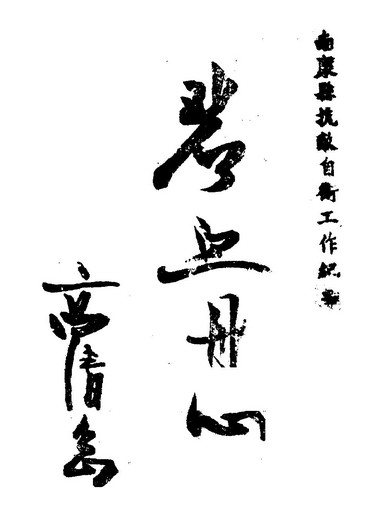 南康縣抗敵自衛工作紀要
碧血丹心
高清岳